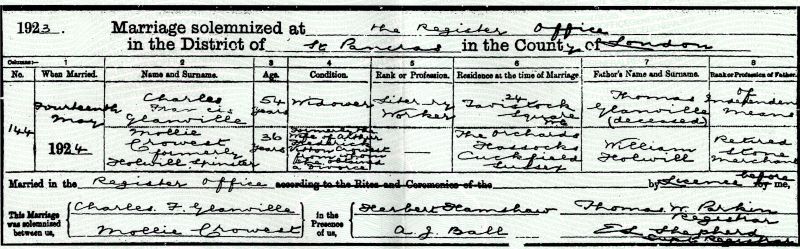 1923. Marriage solemnized at the Register Office
in the District of St. Pancras in the County of London
Columns:— 1 2 3 4 5 6 7 8
No. When Married. Name and Surname. Age. Condition. Rank or Profession. Residence at the time of Marriage Father's Name and Surname. Rank or Profession of Father.
144 Fourteenth May 1924
Charles Francis Glanville 54 years Widower Literary Worker 24 Tavistock Square Thomas Glanville (deceased) of Independent Means
Mollie Crowest formerly Holwill Spinster 36 years formerly the wife of Frederick Crowest from whom she obtained a divorce — The Orchards Hassocks Cuckfield Sussex William Holwill Retired Stone Merchant
Married in the Register Office according to the Rites and Ceremonies of the by Licence before by me,
This Marriage was solemnized between us, Charles F. Glanville Mollie Crowest in the Presence of us, Herbert Hamshaw A. J. Ball Thomas W. Parkin Registrar Ed. Shepherd Registrar